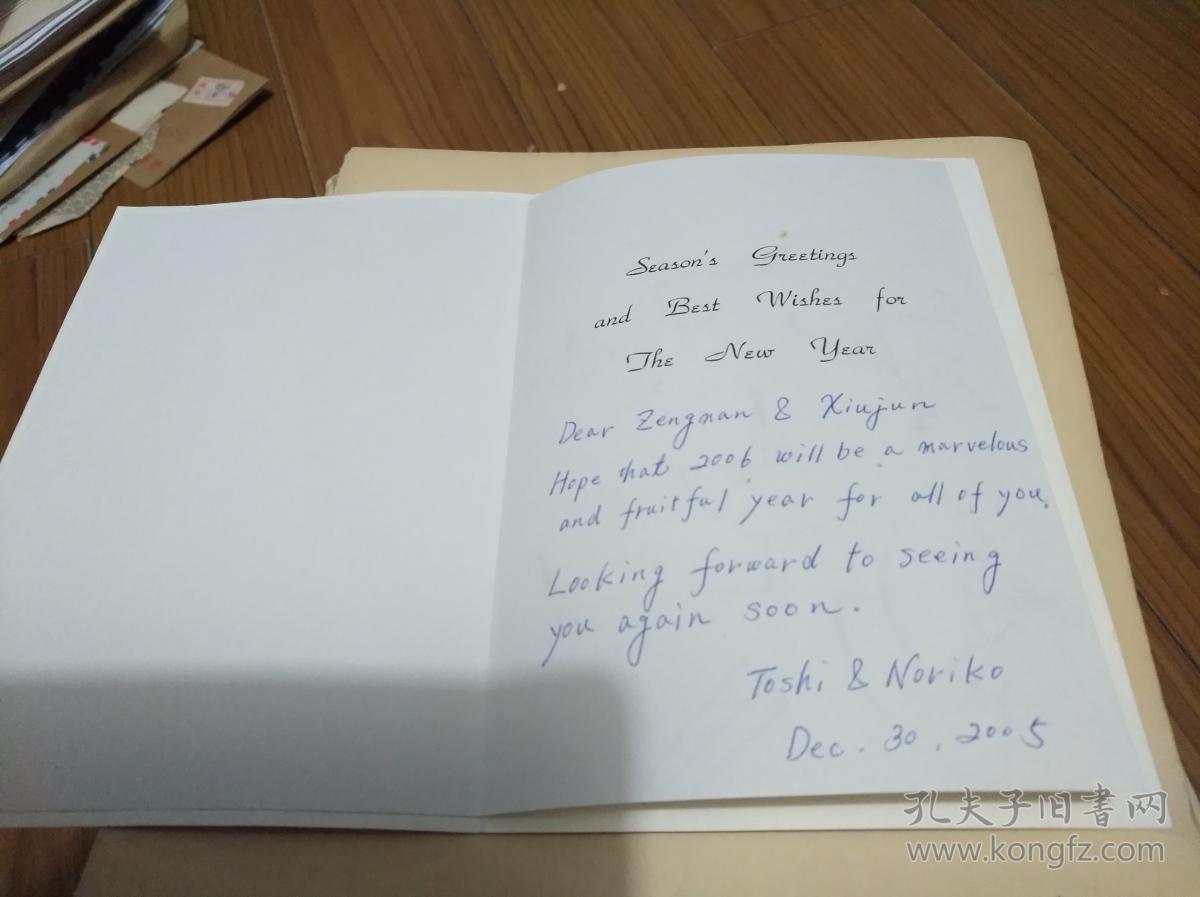 Season's Greetings
and Best Wishes for
The New Year
Dear Zengman & Xiujun
Hope that 2006 will be a marvelous
and fruitful year for all of you.
Looking forward to seeing
you again soon.
Toshi & Noriko
Dec. 30, 2005
孔夫子旧書网
www.kongfz.com